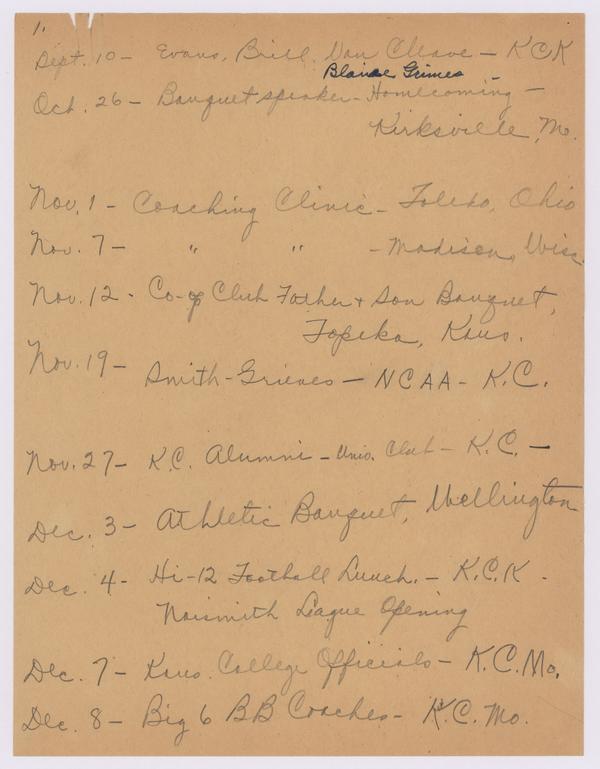 1.
Sept. 10 - Evans, Brill, Van Cleave - KCK
Blaine Grimes
Oct. 26 - Banquet speaker - Homecoming -
Kirksville, Mo.
Nov. 1 - Coaching Clinic - Toledo, Ohio
Nov. 7 - " " - Madison, Wisc.
Nov. 12 - Co-op Club Father + Son Banquet,
Topeka, Kans.
Nov. 19 - Smith-Grieves - NCAA - K.C.
Nov. 27 - K.C. Alumni - Univ. Club - K.C. -
Dec. 3 - Athletic Banquet, Wellington
Dec. 4 - Hi-12 Football Lunch. - K.C.K -
Naismith League Opening
Dec. 7 - Kans. College Officials - K.C. Mo.
Dec. 8 - Big 6 BB Coaches - K.C. Mo.